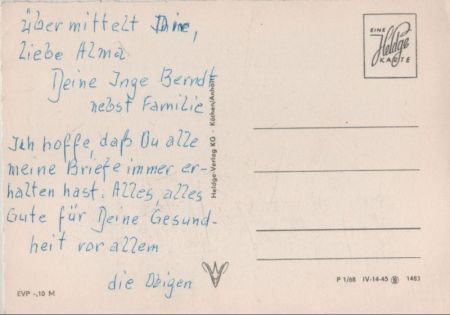 übermittelt Dir,
liebe Alma
Deine Inge Berndt
nebst Familie
Ich hoffe, daß Du alle
meine Briefe immer er-
halten hast. Alles, alles
Gute für Deine Gesund-
heit vor allem
die Obigen
EVP -,10 M
Heldge-Verlag KG · Köthen/Anhalt
EINE
Heldge
KARTE
P 1/68 IV-14-45 1483